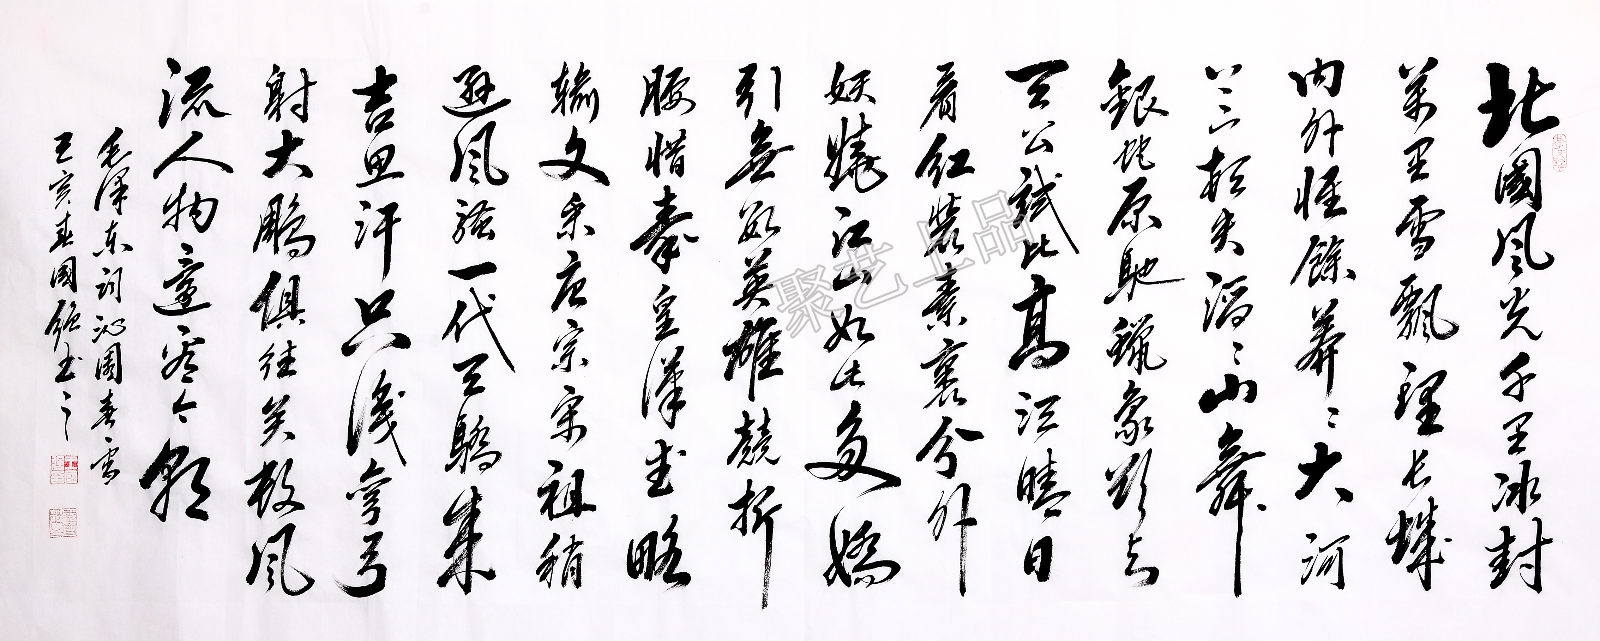 北國風光千里冰封
萬里雪飄望長城
内外惟餘莽〻大河
上下頓失滔〻山舞
銀蛇原馳蠟象欲与
天公試比高須晴日
看紅裝素裹分外
妖嬈江山如此多嬌
引無數英雄競折
腰惜秦皇漢武略
輸文采唐宗宋祖稍
遜風騷一代天驕成
吉思汗只識彎弓
射大鵰俱往矣數風
流人物還看今朝
毛澤東詞沁園春雪
己亥春國强书之
聚艺上品